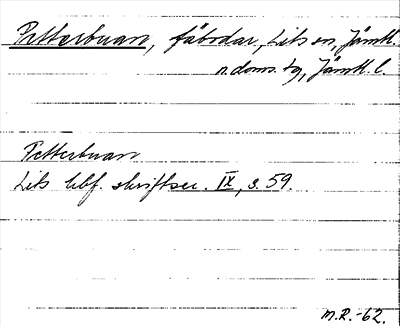 Petterbuan, fäbodar, Lits sn, Jämtl.
n. doms. tg, Jämtl. l.
Petterbuan
Lits hbf. skriftser. IX, s. 59.
M.R.-62.